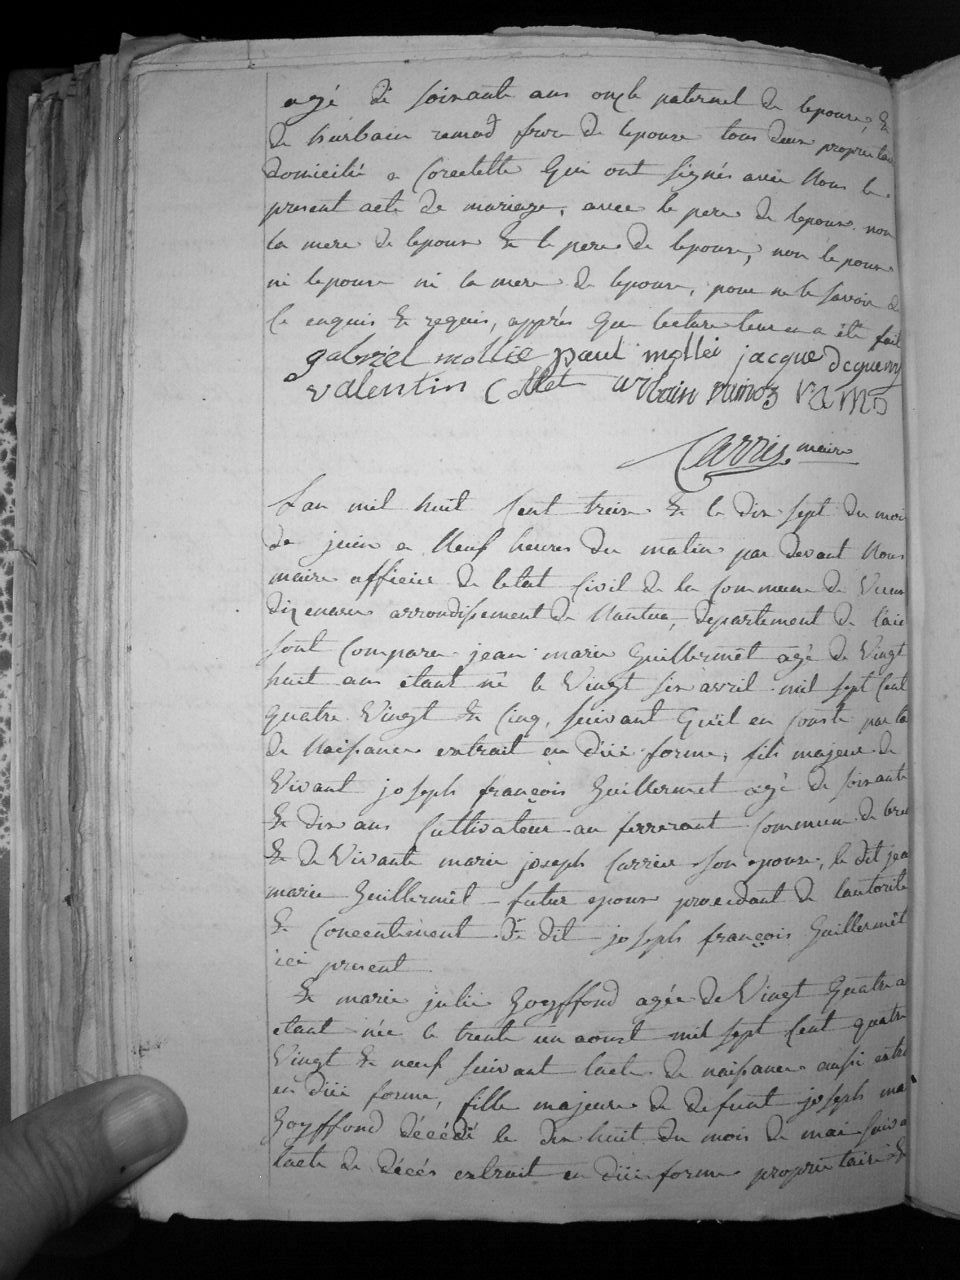 agé de soixante ans oncle paternel de lepouse, &
de hurbain ramod frere de lepouse tous deux proprietai
domicilié a Corcelette Qui ont signés avec Nous le
present acte de mariage, avec le pere de lepoux non
la mere de lepoux & le pere de lepouse, non lepoux
ni lepouse ni la mere de lepouse, pour ne le savoir de
Ce enquis & requis, apprés Que lecture leur en a été fait
gabriel mollie paul mollei jacque
valentin Collet urbain ramoz ramo
Carrier maire
Lan mil huit Cent treize & le dix sept du moi
de juin a Neuf heures du matin par devant Nous
maire officier de letat Civil de la Commune de Vieux
dizenave arrondissement de Nantua, departement de lain
sont Comparu jean marie Guillermêt agé de Vingt
huit ans étant né le Vingt six avril mil sept Cent
Quatre Vingt & Cinq, suivant Quil en Conste par la
de Naissance extrait en düe forme, fils majeur de
Vivant joseph françois Guillermet agé de soixante
& dix ans Cultivateur au ferrerant Commune de bre
& de Vivante marie joseph Carrier son epouse, le dit jea
marie Guillermêt futur epoux procedant de lautorité
& Concentement du dit joseph françois Guillermêt
ici present
& marie julie Goyffond agée de Vingt Quatre a
etant née le trente un aoust mil sept Cent quatre
Vingt & neuf suivant lacte de naissance aussi extra
en düe forme, fille majeure de defunt joseph ma
Goyffond décédé le dix huit du mois de mai suiva
lacte de décés extrait en düe forme proprietaire &